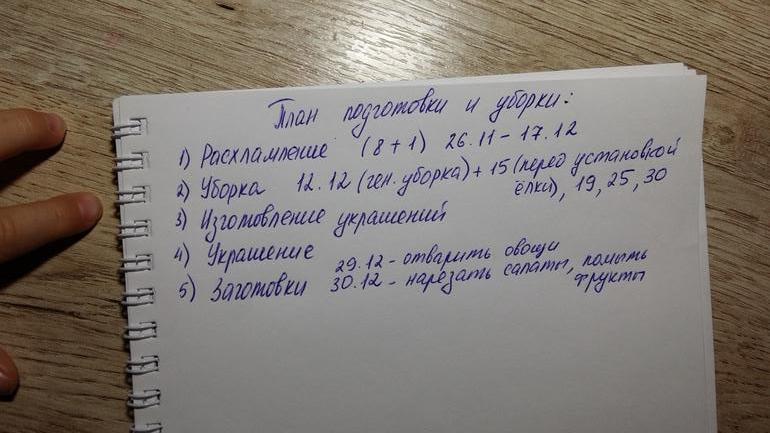 План подготовки и уборки:
1) Расхламление (8+1) 26.11 - 17.12
2) Уборка 12.12 (ген. уборка) + 15 (перед установкой
ёлки), 19, 25, 30
3) Изготовление украшений
4) Украшение
29.12 - отварить овощи
5) Заготовки 30.12 - нарезать салаты, помыть
фрукты